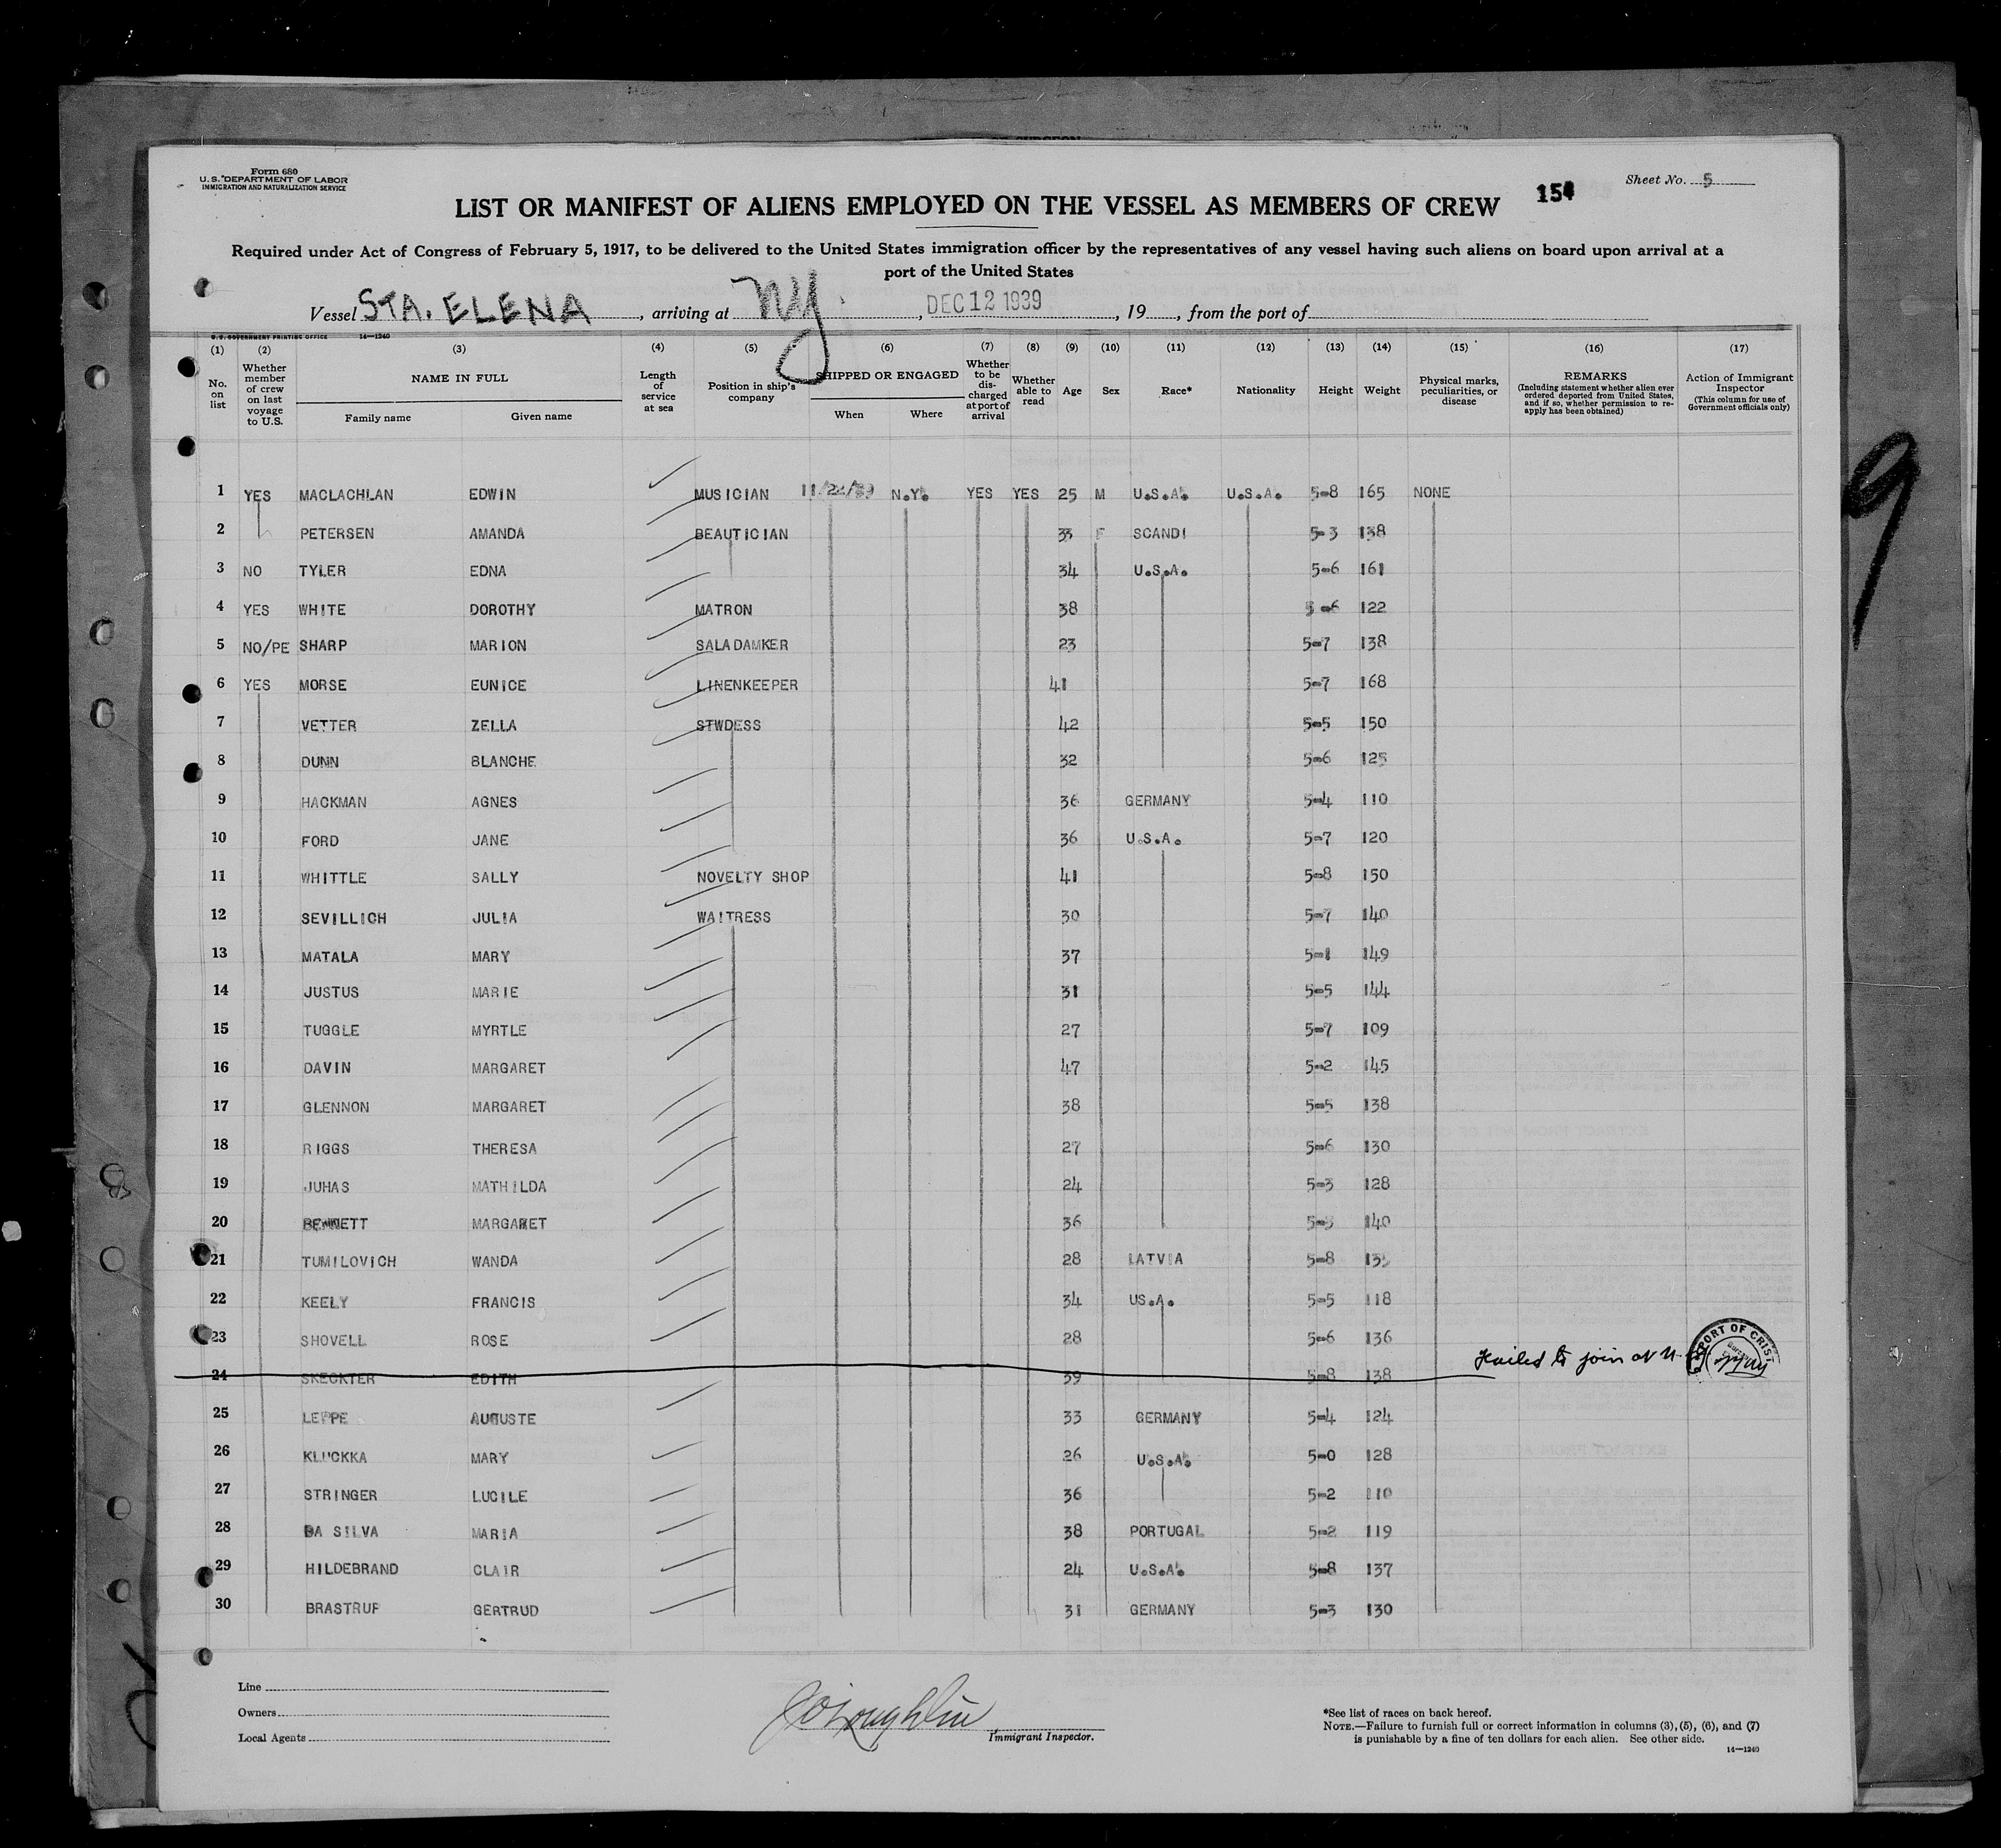 Form 680
U. S. DEPARTMENT OF LABOR
IMMIGRATION AND NATURALIZATION SERVICE
Sheet No. 5
LIST OR MANIFEST OF ALIENS EMPLOYED ON THE VESSEL AS MEMBERS OF CREW
Required under Act of Congress of February 5, 1917, to be delivered to the United States immigration officer by the representatives of any vessel having such aliens on board upon arrival at a
port of the United States
Vessel STA. ELENA, arriving at NY, DEC 12 1939, 19, from the port of
U. S. GOVERNMENT PRINTING OFFICE 14—1240
(1) (2) (3) (4) (5) (6) (7) (8) (9) (10) (11) (12) (13) (14) (15) (16) (17)
No. on list
Whether member of crew on last voyage to U.S.
NAME IN FULL
Family name Given name
Length of service at sea
Position in ship's company
SHIPPED OR ENGAGED
When Where
Whether to be discharged at port of arrival
Whether able to read
Age Sex Race* Nationality Height Weight
Physical marks, peculiarities, or disease
REMARKS
(Including statement whether alien ever ordered deported from United States, and if so, whether permission to re-apply has been obtained)
Action of Immigrant Inspector
(This column for use of Government officials only)
1 YES MACLACHLAN EDWIN MUSICIAN N.Y. YES YES 25 M U.S.A. U.S.A. 5-8 165 NONE
2 PETERSEN AMANDA BEAUTICIAN 33 F SCANDI 5-3 138
3 NO TYLER EDNA 34 U.S.A. 5-6 161
4 YES WHITE DOROTHY MATRON 38 5-6 122
5 NO/PE SHARP MARION SALADAMKER 23 5-7 138
6 YES MORSE EUNICE LINENKEEPER 41 5-7 168
7 VETTER ZELLA STWDESS 42 5-5 150
8 DUNN BLANCHE 32 5-6 125
9 HACKMAN AGNES 36 GERMANY 5-4 110
10 FORD JANE 36 U.S.A. 5-7 120
11 WHITTLE SALLY NOVELTY SHOP 41 5-8 150
12 SEVILLICH JULIA WAITRESS 30 5-7 140
13 MATALA MARY 37 5-1 149
14 JUSTUS MARIE 31 5-5 144
15 TUGGLE MYRTLE 27 5-7 109
16 DAVIN MARGARET 47 5-2 145
17 GLENNON MARGARET 38 5-5 138
18 RIGGS THERESA 27 5-6 130
19 JUHAS MATHILDA 24 5-3 128
20 BENNETT MARGARET 36 140
21 TUMILOVICH WANDA 28 LATVIA 5-8
22 KEELY FRANCIS 34 US.A. 5-5 118
23 SHOVELL ROSE 28 5-6 136
24 SKECKTER EDITH 39 5-8 138 Failed to join at
25 LEPPE AUGUSTE 33 GERMANY 5-4 124
26 KLUCKKA MARY 26 U.S.A. 5-0 128
27 STRINGER LUCILE 36 5-2 110
28 DA SILVA MARIA 38 PORTUGAL 5-2 119
29 HILDEBRAND CLAIR 24 U.S.A. 5-8 137
30 BRASTRUP GERTRUD 31 GERMANY 5-3 130
Line
Owners
Local Agents
Immigrant Inspector.
*See list of races on back hereof.
NOTE.—Failure to furnish full or correct information in columns (3), (5), (6), and (7)
is punishable by a fine of ten dollars for each alien. See other side.
14—1240
9